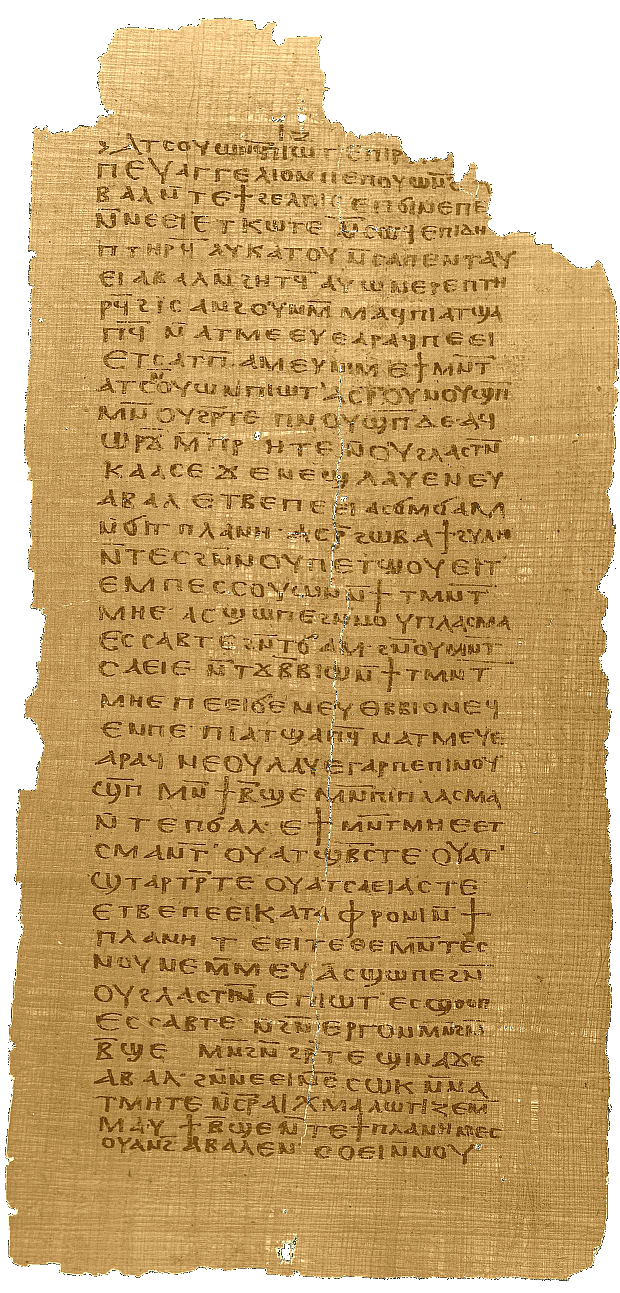 ⲓⲍ
ⲡⲉⲩⲁⲅⲅⲉⲗⲓⲟⲛ ⲡⲉ ⲡⲟⲩⲱⲛϩ
ⲃⲁⲗ ⲛ̄ⲧⲉ ϯϩⲉⲗⲡⲓⲥ ⲉⲡϭⲓⲛⲉ ⲡⲉ
ⲛ̄ⲛⲉⲉⲓ ⲉⲧⲕⲱⲧⲉ ⲛ̄ⲥⲱϥ ⲉⲡⲓⲇⲏ
ⲡⲧⲏⲣϥ ⲁⲩⲕⲁⲧⲟⲩ ⲛ̄ⲥⲁ ⲡⲉⲛⲧⲁⲩ
ⲉⲓ ⲁⲃⲁⲗ ⲛ̄ϩⲏⲧϥ̄ ⲁⲩⲱ ⲛⲉⲣⲉ ⲡⲧⲏ
ⲣϥ̄ ϩⲓ ⲥⲁⲛϩⲟⲩⲛ ⲙ̄ⲙⲁϥ ⲡⲓⲁⲧϣⲁ
ⲡϥ̄ ⲛ̄ⲁⲧⲙⲉⲉⲩⲉ ⲁⲣⲁϥ ⲡⲉⲉⲓ
ⲉⲧⲥⲁⲧⲡ̄ ⲁⲙⲉⲩ ⲛⲓⲙ ⲉϯⲙⲛ̄ⲧ
ⲁⲧⲥⲟⲩⲱⲛ ⲡⲓⲱⲧ ⲁⲥⲣ̄ ⲟⲩⲛⲟⲩϣⲡ̄
ⲙⲛ̄ ⲟⲩϩⲣⲧⲉ ⲡⲛⲟⲩϣⲡ̄ ⲇⲉ ⲁϥ
ⲱⲣϫ̄ ⲙ̄ⲡⲣⲏⲧⲉ ⲛ̄ⲟⲩϩⲗⲁⲥⲧⲛ̄
ⲕⲁⲁⲥⲉ ϫⲉ ⲛⲉϣ ⲗⲁⲩⲉ ⲛⲉⲩ
ⲁⲃⲁⲗ ⲉⲧⲃⲉ ⲡⲉⲉⲓ ⲁⲥϭⲙ̄ϭⲁⲙ
ⲛ̄ϭⲓ ϯⲡⲗⲁⲛⲏ ⲁⲥⲣ̄ ϩⲱⲃ ⲁϯϩⲩⲗⲏ
ⲛ̄ⲧⲉⲥ ϩⲛ̄ⲛ ⲟⲩⲡⲉⲧϣⲟⲩⲉⲓⲧ
ⲉⲙⲡⲉⲥⲥⲟⲩⲱⲛ ⲛ̄ϯⲧⲙⲛ̄ⲧ
ⲙⲏⲉ ⲁⲥϣⲱⲡⲉ ϩⲛ̄ⲛ ⲟⲩⲡⲗⲁⲥⲙⲁ
ⲉⲥⲥⲁⲃⲧⲉ ϩⲛ̄ ⲧϭⲁⲙ ϩⲛ̄ⲛ ⲟⲩⲙⲛⲧ
ⲥⲁⲉⲓⲉ ⲛ̄ⲧϫⲃⲃⲓⲱ ⲛ̄ϯⲧⲙⲛ̄ⲧ
ⲙⲏⲉ ⲡⲉⲉⲓ ϭⲉ ⲛⲉⲩⲑⲃⲃⲓⲟ ⲛⲉϥ
ⲉⲛ ⲡⲉ ⲡⲓⲁⲧϣⲁⲡϥ̄ ⲛ̄ⲁⲧⲙⲉⲩⲉ
ⲁⲣⲁϥ ⲛⲉⲟⲩⲗⲁⲩⲉ ⲅⲁⲣ ⲡⲉ ⲡⲓⲛⲟⲩ
ϣⲡ̄ ⲙⲛ̄ ϯⲃ̄ϣⲉ ⲙⲛ̄ ⲡⲓⲡⲗⲁⲥⲙⲁ
ⲛ̄ⲧⲉ ⲡϭⲁⲗ ⲉϯⲙⲛ̄ⲧⲙⲏⲉ ⲉⲧ
ⲥⲙⲁⲛⲧ ⲟⲩⲁⲧϣⲃ̄ⲥ ⲧⲉ ⲟⲩⲁⲧ
ϣⲧⲁⲣⲧⲣ̄ ⲧⲉ ⲟⲩⲁⲧⲥⲁⲉⲓⲁⲥ ⲧⲉ
ⲉⲧⲃⲉ ⲡⲉⲉⲓ ⲕⲁⲧⲁⲫⲣⲟⲛⲓ ⲛ̄ϯ
ⲡⲗⲁⲛⲏ ⲧⲉⲉⲓ ⲧⲉ ⲑⲉ ⲙⲛ̄ⲧⲉⲥ
ⲛⲟⲩⲛⲉ ⲙ̄ⲙⲉⲩ ⲁⲥϣⲱⲡⲉ ϩⲛ̄ⲛ
ⲟⲩϩⲗⲁⲥⲧⲛ̄ ⲉⲡⲓⲱⲧ ⲉⲥϣⲟⲟⲡ
ⲉⲥⲥⲁⲃⲧⲉ ⲛ̄ϩⲛ̄ⲉⲣⲅⲟⲛ ⲙⲛ̄ ϩⲛ̄
ⲃ̄ϣⲉ ⲙⲛ̄ ϩⲛ̄ϩⲣ̄ⲧⲉ ϣⲓⲛⲁ ϫⲉ
ⲁⲃⲁⲗ ϩⲛ̄ ⲛⲉⲉⲓ ⲛⲉⲥⲱⲕ ⲛ̄ⲛⲁ
ⲧⲙⲏⲧⲉ ⲛ̄ⲥⲣ̄ ⲁⲓⲭⲙⲁⲗⲱⲧⲓⲍⲉ ⲙ̄
ⲙⲁⲩ ϯⲃ̄ϣⲉ ⲛ̄ⲧⲉ ϯⲡⲗⲁⲛⲏ ⲛⲉⲥ
ⲟⲩⲁⲛϩ ⲁⲃⲁⲗ ⲉⲛ ⲥⲟⲉⲓ ⲛ̄ⲛⲟⲩ